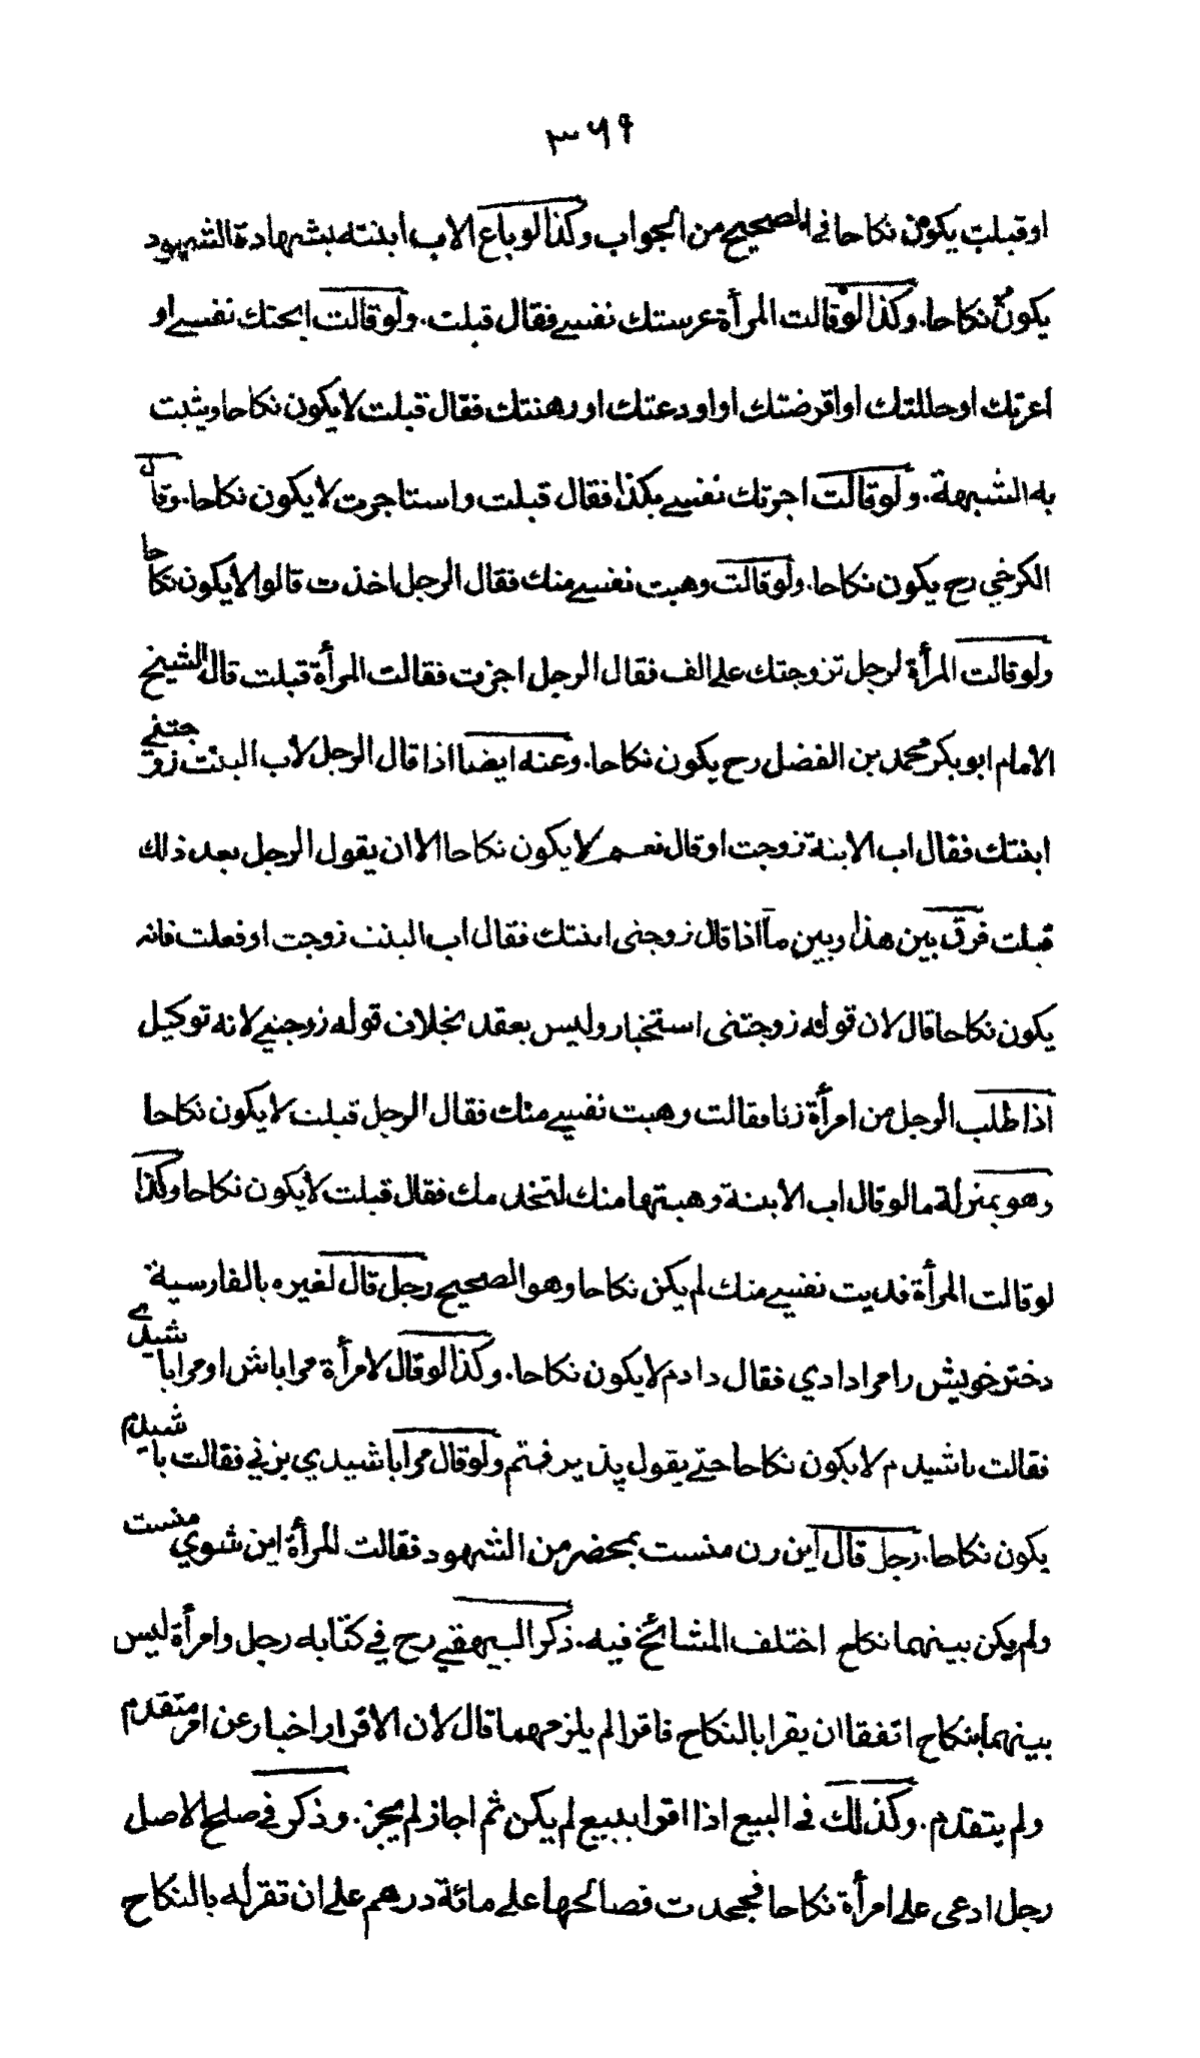 ٣٦٩
او قبلت يكون نكاحا في الصحيح من الجواب وكذا لو باع الاب ابنته بشهادة الشهود
يكون نكاحا. وكذا لو قالت المرأة عرستك نفسي فقال قبلت. ولو قالت ابحتك نفسي او
اعرتك او حللتك او اقرضتك او اودعتك او رهنتك فقال قبلت لا يكون نكاحا ويثبت
به الشبهة. ولو قالت اجرتك نفسي بكذا فقال قبلت واستاجرت لا يكون نكاحا. وقال
الكرخي رح يكون نكاحا. ولو قالت وهبت نفسي منك فقال الرجل اخذت قالوا لا يكون نكاحا
ولو قالت المرأة لرجل تزوجتك على الف فقال الرجل اجزت فقالت المرأة قبلت قال الشيخ
الامام ابو بكر محمد بن الفضل رح يكون نكاحا. وعنه ايضا اذا قال الرجل لاب البنت زوجتني
ابنتك فقال اب الابنة زوجت او قال نعم لا يكون نكاحا الا ان يقول الرجل بعد ذلك
قبلت فرق بين هذا وبين ما اذا قال زوجني ابنتك فقال اب البنت زوجت او فعلت فانه
يكون نكاحا قال لان قوله زوجتنى استخبار وليس بعقد بخلاف قوله زوجني لانه توكيل
اذا طلب الرجل من امرأة زنا فقالت وهبت نفسي منك فقال الرجل قبلت لا يكون نكاحا
وهو بمنزلة ما لو قال اب الابنة وهبتها منك لتخدمك فقال قبلت لا يكون نكاحا وكذا
لو قالت المرأة فديت نفسي منك لم يكن نكاحا وهو الصحيح رجل قال لغيره بالفارسية
دختر خويش را مرا دادي فقال دادم لا يكون نكاحا. وكذا لو قال لامرأة مرا باش او مرا باشيدي
فقالت باشيدم لا يكون نكاحا حتي يقول پذيرفتم ولو قال مرا باشيدي بزني فقالت باشيدم
يكون نكاحا. رجل قال اين زن منست بمحضر من الشهود فقالت المرأة اين شوي منست
ولم يكن بينهما نكاح اختلف المشائخ فيه. ذكر البيهقي رح في كتابه رجل وامرأة ليس
بينهما نكاح اتفقا ان يقرا بالنكاح فاقرا لم يلزمهما قال لان الاقرار اخبار عن امر متقدم
ولم يتقدم. وكذلك في البيع اذا اقرا ببيع لم يكن ثم اجاز لم يجز. وذكر في صلح الاصل
رجل ادعى على امرأة نكاحا فجحدت فصالحها على مائة درهم على ان تقر له بالنكاح